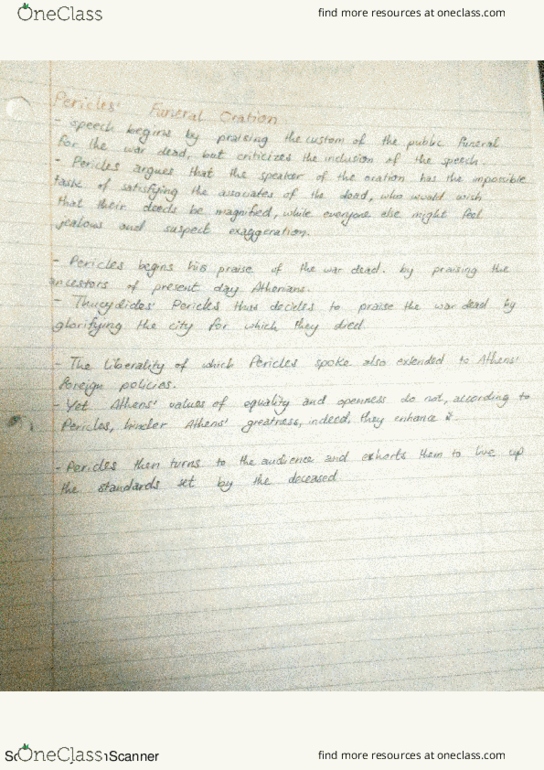 OneClass
find more resources at oneclass.com
Pericles' Funeral Oration
- speech begins by praising the custom of the public funeral
for the war dead, but criticizes the inclusion of the speech.
- Pericles argues that the speaker of the oration has the impossible
task of satisfying the associates of the dead, who would wish
that their deeds be magnified, while everyone else might feel
jealous and suspect exaggeration.
- Pericles begins his praise of the war dead. by praising the
ancestors of present day Athenians.
- Thucydides' Pericles thus decides to praise the war dead by
glorifying the city for which they died
- The Liberality of which Pericles spoke also extended to Athens'
foreign policies.
- Yet Athens' values of equality and openness do not, according to
Pericles, hinder Athens' greatness, indeed, they enhance it.
- Pericles then turns to the audience and exhorts them to live up
the standards set by the deceased
OneClass Scanner
find more resources at oneclass.com